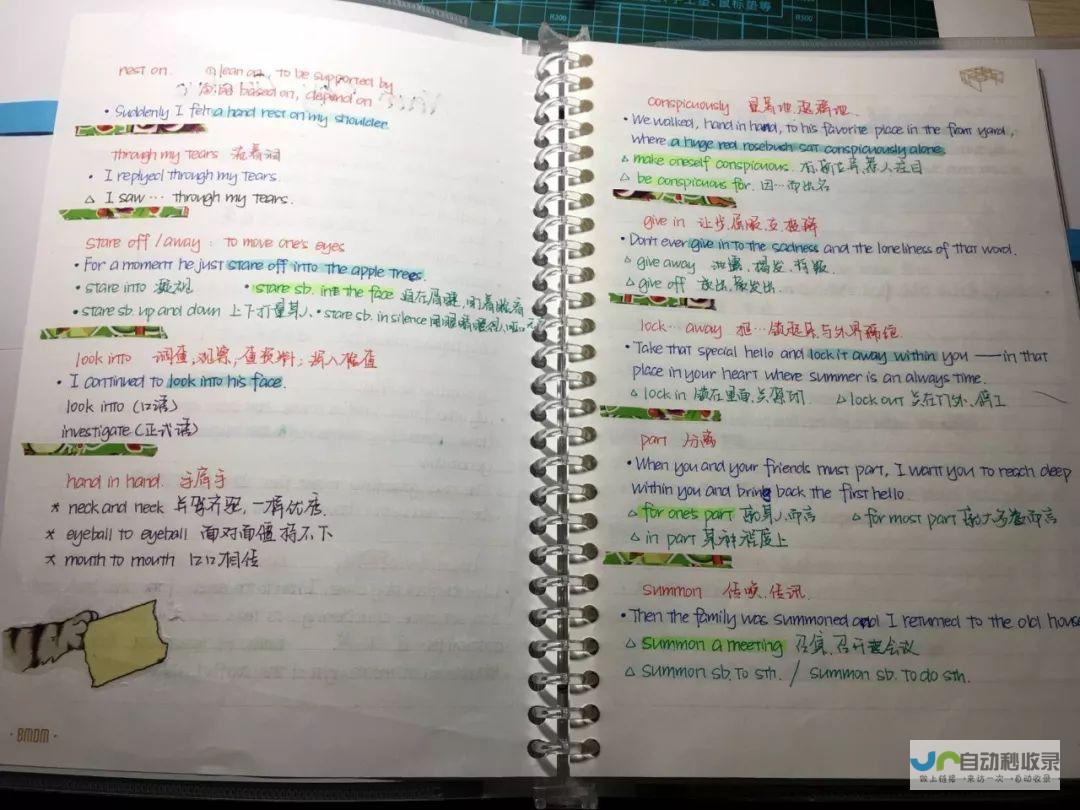 rest on. ① lean on, to be supported by
② based on, depend on
• Suddenly I felt a hand rest on my shoulder.
through my tears 流着泪
• I replyed through my tears.
△ I saw ··· through my tears.
stare off / away : to move one's eyes
• For a moment he just stare off into the apple trees.
• stare into 凝视 • stare sb. in the face
• stare sb. up and down 上下打量某人 • stare sb. in silence
look into 调查,观察,查资料;深入检查
• I continued to look into his face.
look into (口语)
investigate (正式语)
hand in hand. 手肩手
* neck and neck 并驾齐驱,一样优秀.
* eyeball to eyeball 面对面僵持不下
* mouth to mouth 口口相传
·BMDM·
conspicuously 显著地,惹眼地
• We walked, hand in hand, to his favorite place in the front yard,
where a huge red rosebush sat conspicuously alone.
△ make oneself conspicuous. 标新立异,惹人注目
△ be conspicuous for. 因···而出名
give in 让步,屈服,交,投降
• Don't ever give in to the sadness and the loneliness of that word.
△ give away 泄露、揭发、
△ give off 放出,散发出.
lock··· away 把···锁起来与外界隔绝
• Take that special hello and lock it away within you — in that
place in your heart where summer is an always time.
△ lock in 锁在里面,关禁闭. △ lock out 关在门外、停工
part 分离
• When you and your friends must part, I want you to reach deep
within you and bring back the first hello
△ for one's part 就某人而言 △ for most part 就大多数而言
△ in part 某种程度上
summon 传唤,传讯.
• Then the family was summoned and I returned to the old house
△ summon a meeting 召集,召开会议
△ summon sb. to sth. / summon sb. to do sth.
自动秒收录
做上链接→来访一次→自动收录